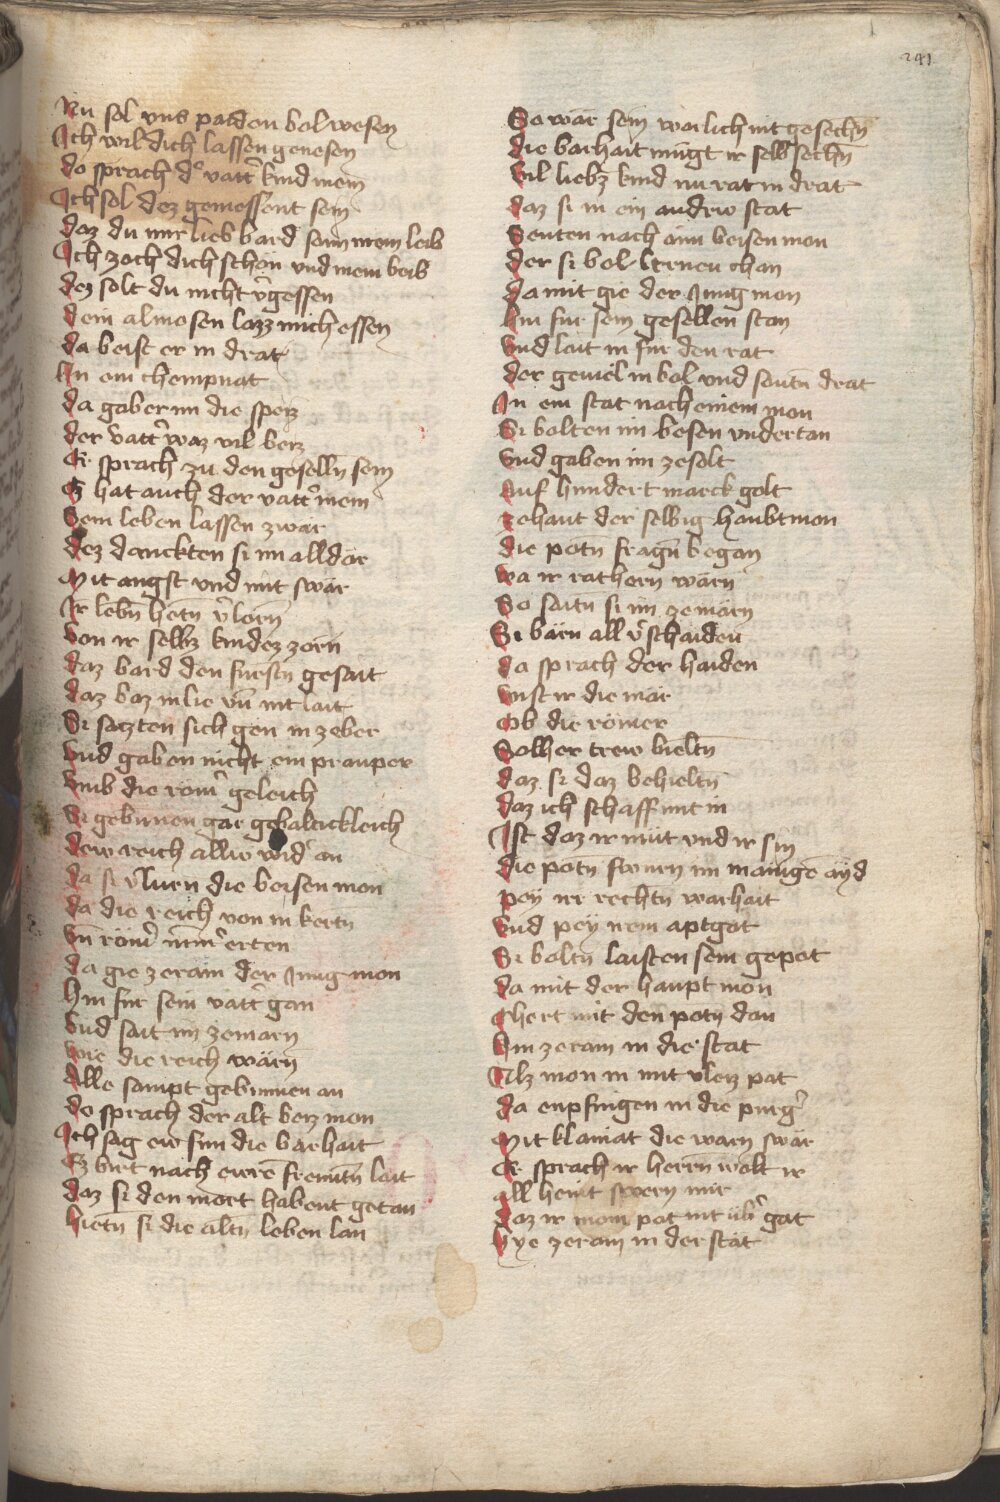 241
Nu sol vns paiden bol wesen
Ich wil dich lassen genesen
do sprach d' vatt' kind mein
Ich sol dez genossent sein
daz du mir lieb bard sam mein leib
Ich zoch dich schon vnd mein beib
dez solt du nicht v'gessen
dein almosen lazz mich essen
da beist er in drat
In ein chempnat
da gab er im die speiz
der vatt' waz vil beiz
Er sprach zu den geselln sein
Ez hat auch der vatt' mein
Sein leben lassen zwar
dez danckten si im alldar
Mit angst vnd mit swär
Ir lebn hetn v'lorn
von ir selbz kindez zorn
daz bard den fürstn gesait
daz baz in lie vn nit lait
Si sazten sich gen in zeber
vnd gaben nicht ein prauper
vmb die röm' geleich
Si gebunen gar gebaltickleich
dew reich alliv wid' an
da si v'lurn die beisen mon
da die reich von in kertn
vn röm' nim' erten
da gie zeram der Jung mon
hin für sein vatt' gan
vnd sait im zemarn
wie die reich wärn
Alle sampt gebunnen an
do sprach der alt beiz mon
Ich sag ew sun die barhait
Ez birt nach ewre freuntn lait
daz si den mort habent getan
hietn si die altn leben lan
So wär sein warlich nit gesechn
die barhait mügt ir selb sechn
vil liebz kind nu rat in drat
daz si in ein andrew stat
Senten nach aim beisen mon
der si bol lernen chan
da mit gie der Jung mon
hin für sein gesellen stan
vnd lait in für den rat
der geviel in bol vnd santn drat
In ein stat nach einem mon
Si bolten im besen vndertan
vnd gaben im zesolt
Auf hundert marck golt
zehant der selbig haubtmon
die potn fragn began
wa ir rathern wärn
So saitn si im zemärn
Si bärn all v'schaiden
da sprach der haiden
wist ir die mär
Ob die römer
Solher trew bieltn
daz si daz behieltn
daz ich schaff mit in
Ist daz ir müt vnd ir sin
die potn swurn im manige ayd
pey irr rechtn warhait
vnd pey irem aptgot
Si boltn laisten sein gepot
da mit der haupt mon
chert mit den potn dan
hin zeram in die stat
Alz mon in mit vleiz pat
da enpfingen in die purg'
Mit klainat die warn swär
Er sprach ir herrn welt ir
all heut swern mir
daz ir mein pot nit üb' gat
hye zeram in der stat